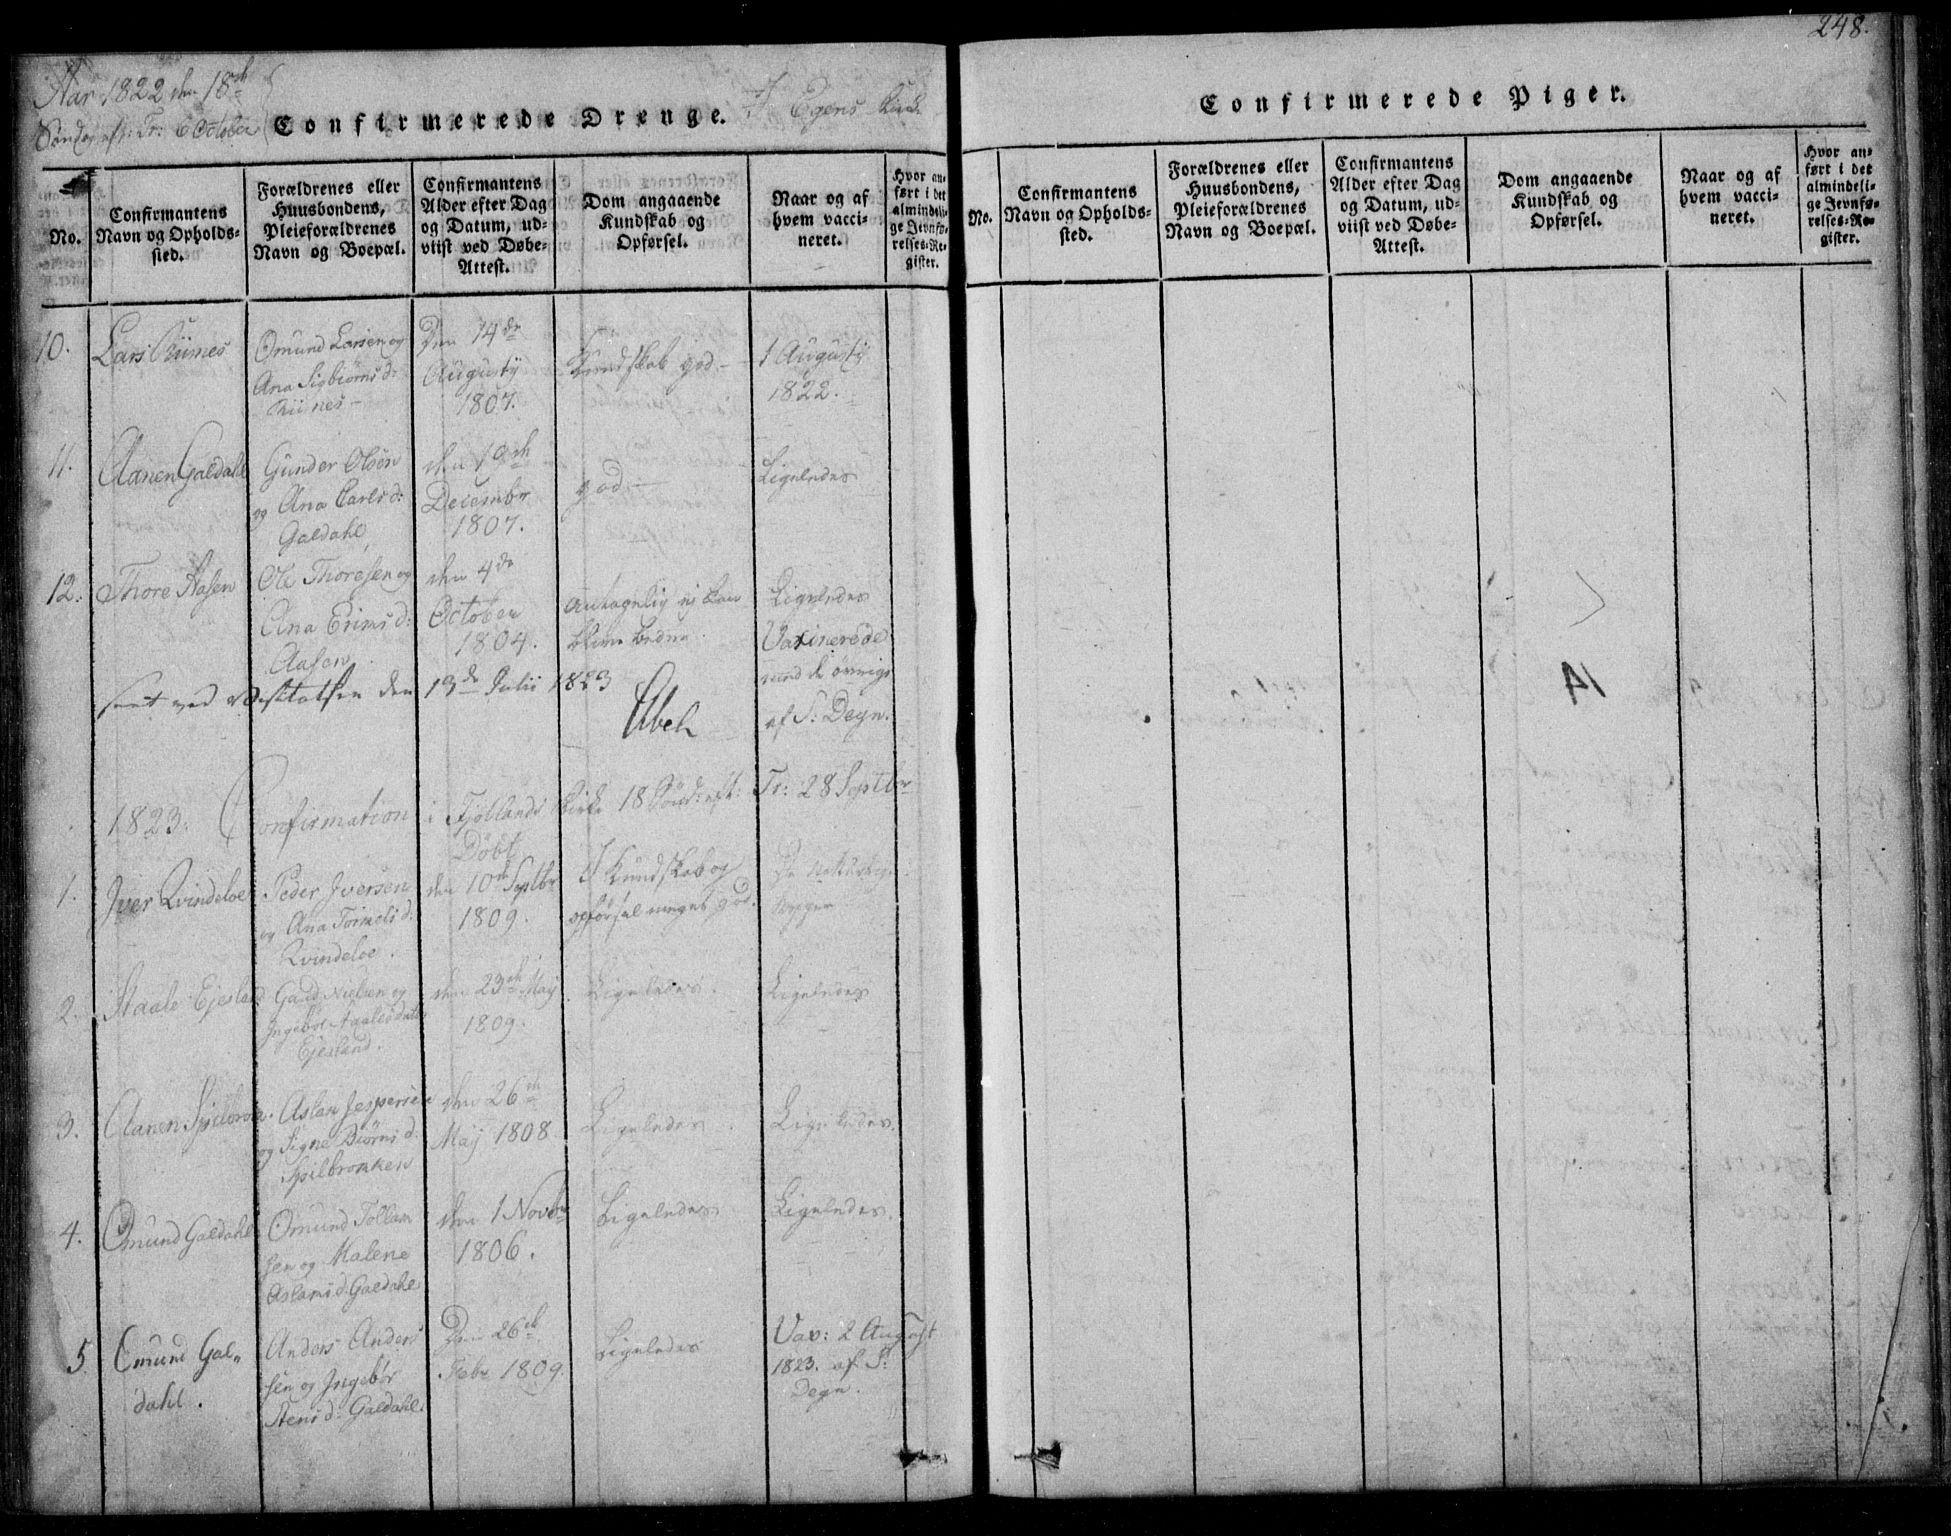 248.
Aar 1822 den 18de
Søndag eft: Tr: 6 October
Confirmerede Drenge.
I Egens Kirke
No.
Confirmantens
Navn og Opholds-
sted.
Forældrenes eller
Huusbondens,
Pleieforældrenes
Navn og Boepæl.
Confirmantens
Alder efter Dag
og Datum, ud-
viist ved Døbe-
Attest.
Dom angaaende
Kundskab og
Opførsel.
Naar og af
hvem vacci-
neret.
Hvor an-
ført i det
almindeli-
ge Jevnfø-
relses-Re-
gister.
10.
Lars Riines
Omund Larsen og
Ana Sigbiørns d:
Riines
Den 14de
Augusty
1807.
Kundskab god
1 Augusty
1822.
11.
Aanen Galdahl
Gunder Olsøn
og Ana Carls d:
Galdahl
den 19de
Decembr
1807.
god
Ligeledes
12.
Thore Aasen
Ole Thoresen og
Ana Erims d:
Aasen
den 4de
October
1804.
antagelig ej kan
blive bedre.
Ligeledes
Vaxinerede
med de øvrige
af S: Degn.
seet ved Visitatsen den 13de Julii 1823
Abel
1823. Confirmation i Fjotlands Kirke 18 Sönd: eft: Tr: 28 Septbr
Döbt
1.
Iver Qvindeloe
Peder Iversen
og Ana Tormods d:
Qvindeloe.
den 10de Septbr
1809.
I Kundskab og
opførsel meget god.
De Naturlige
Kopper
2.
Staale Ejesland
Gaut Nielsen og
Ingebør Staalesdatter
Ejesland.
den 23de Maij
1809.
Ligeledes.
Ligeledes
3.
Aanen Spilbrok.
Aslak Jespersen
og Signe Biørns d.
Spilbrokken
den 26de
Maij 1808
Ligeledes
Ligeledes.
4.
Omund Galdahl
Omund Tollav
sen og Malene
Aslaks d. Galdahl
den 1 Novbr
1806.
Ligeledes
Ligeledes.
5
Omund Gal-
dahl.
Anders Anders
sen og Ingebör
Stens d: Galdahl.
Den 26de
Febr 1809.
Ligeledes
Vax: 2 August
1823. af S:
Degn.
Confirmerede Piger.
No.
Confirmantens
Navn og Opholds-
sted.
Forældrenes eller
Huusbondens,
Pleieforældrenes
Navn og Boepæl.
Confirmantens
Alder efter Dag
og Datum, ud-
viist ved Døbe-
Attest.
Dom angaaende
Kundskab og
Opførsel.
Naar og af
hvem vacci-
neret.
Hvor an-
ført i det
almindeli-
ge Jevnfø-
relses-Re-
gister.